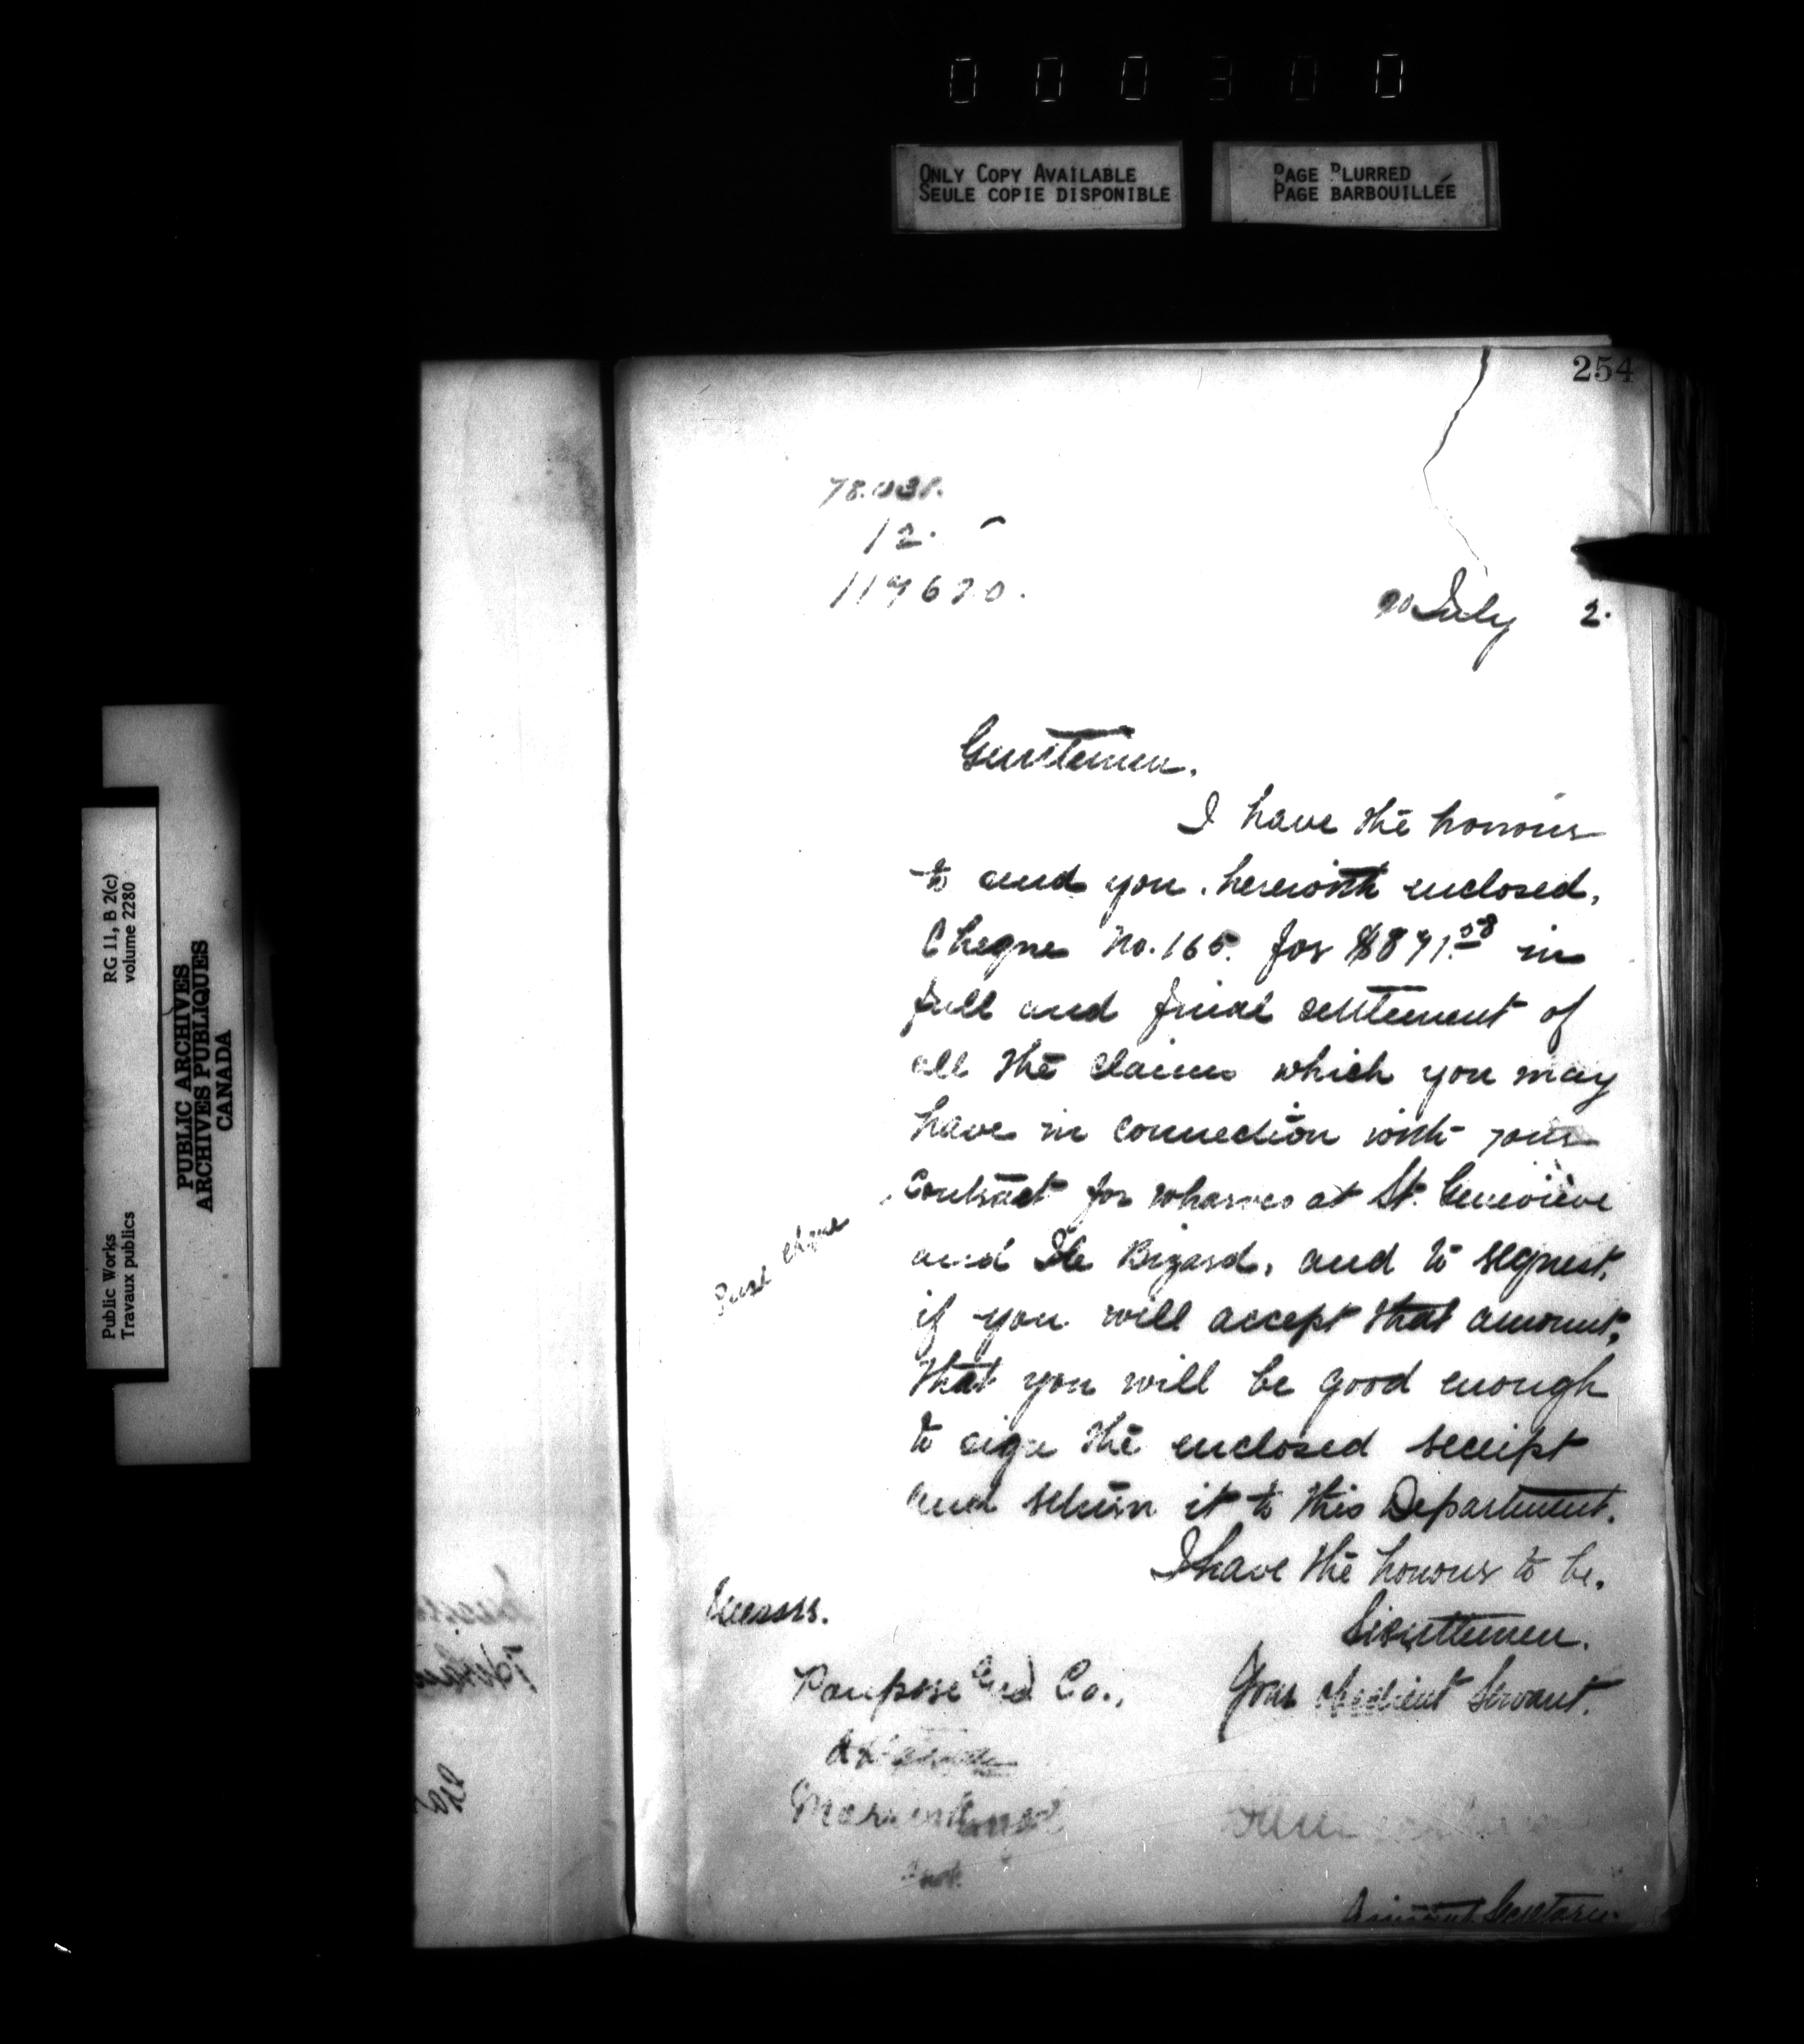 000300
ONLY COPY AVAILABLE
SEULE COPIE DISPONIBLE
PAGE BLURRED
PAGE BARBOUILLÉE
254
12.
117620.
20 July 2.
Gentlemen.
I have the honour
to send you, herewith enclosed,
Cheque No. 165. for $871.58 in
full and final settlement of
all the claims which you may
have in connection with your
contract for wharves at St. Geneviève
and Ile Bizard, and to request,
if you will accept that amount,
that you will be good enough
to sign the enclosed receipt
and return it to this Department.
I have the honour to be.
Gentlemen.
Your obedient Servant.
Messrs.
Co.,
Assistant Secretary.
Public Works
Travaux publics
RG 11, B 2(c)
volume 2280
PUBLIC ARCHIVES
ARCHIVES PUBLIQUES
CANADA